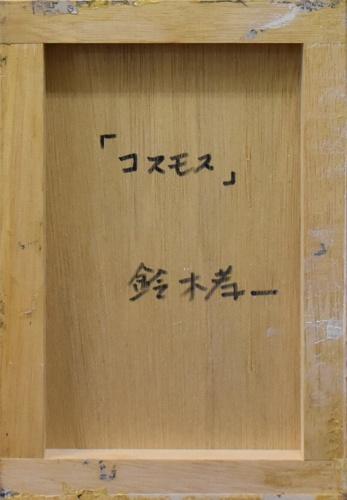 「コスモス」
鈴木孝一